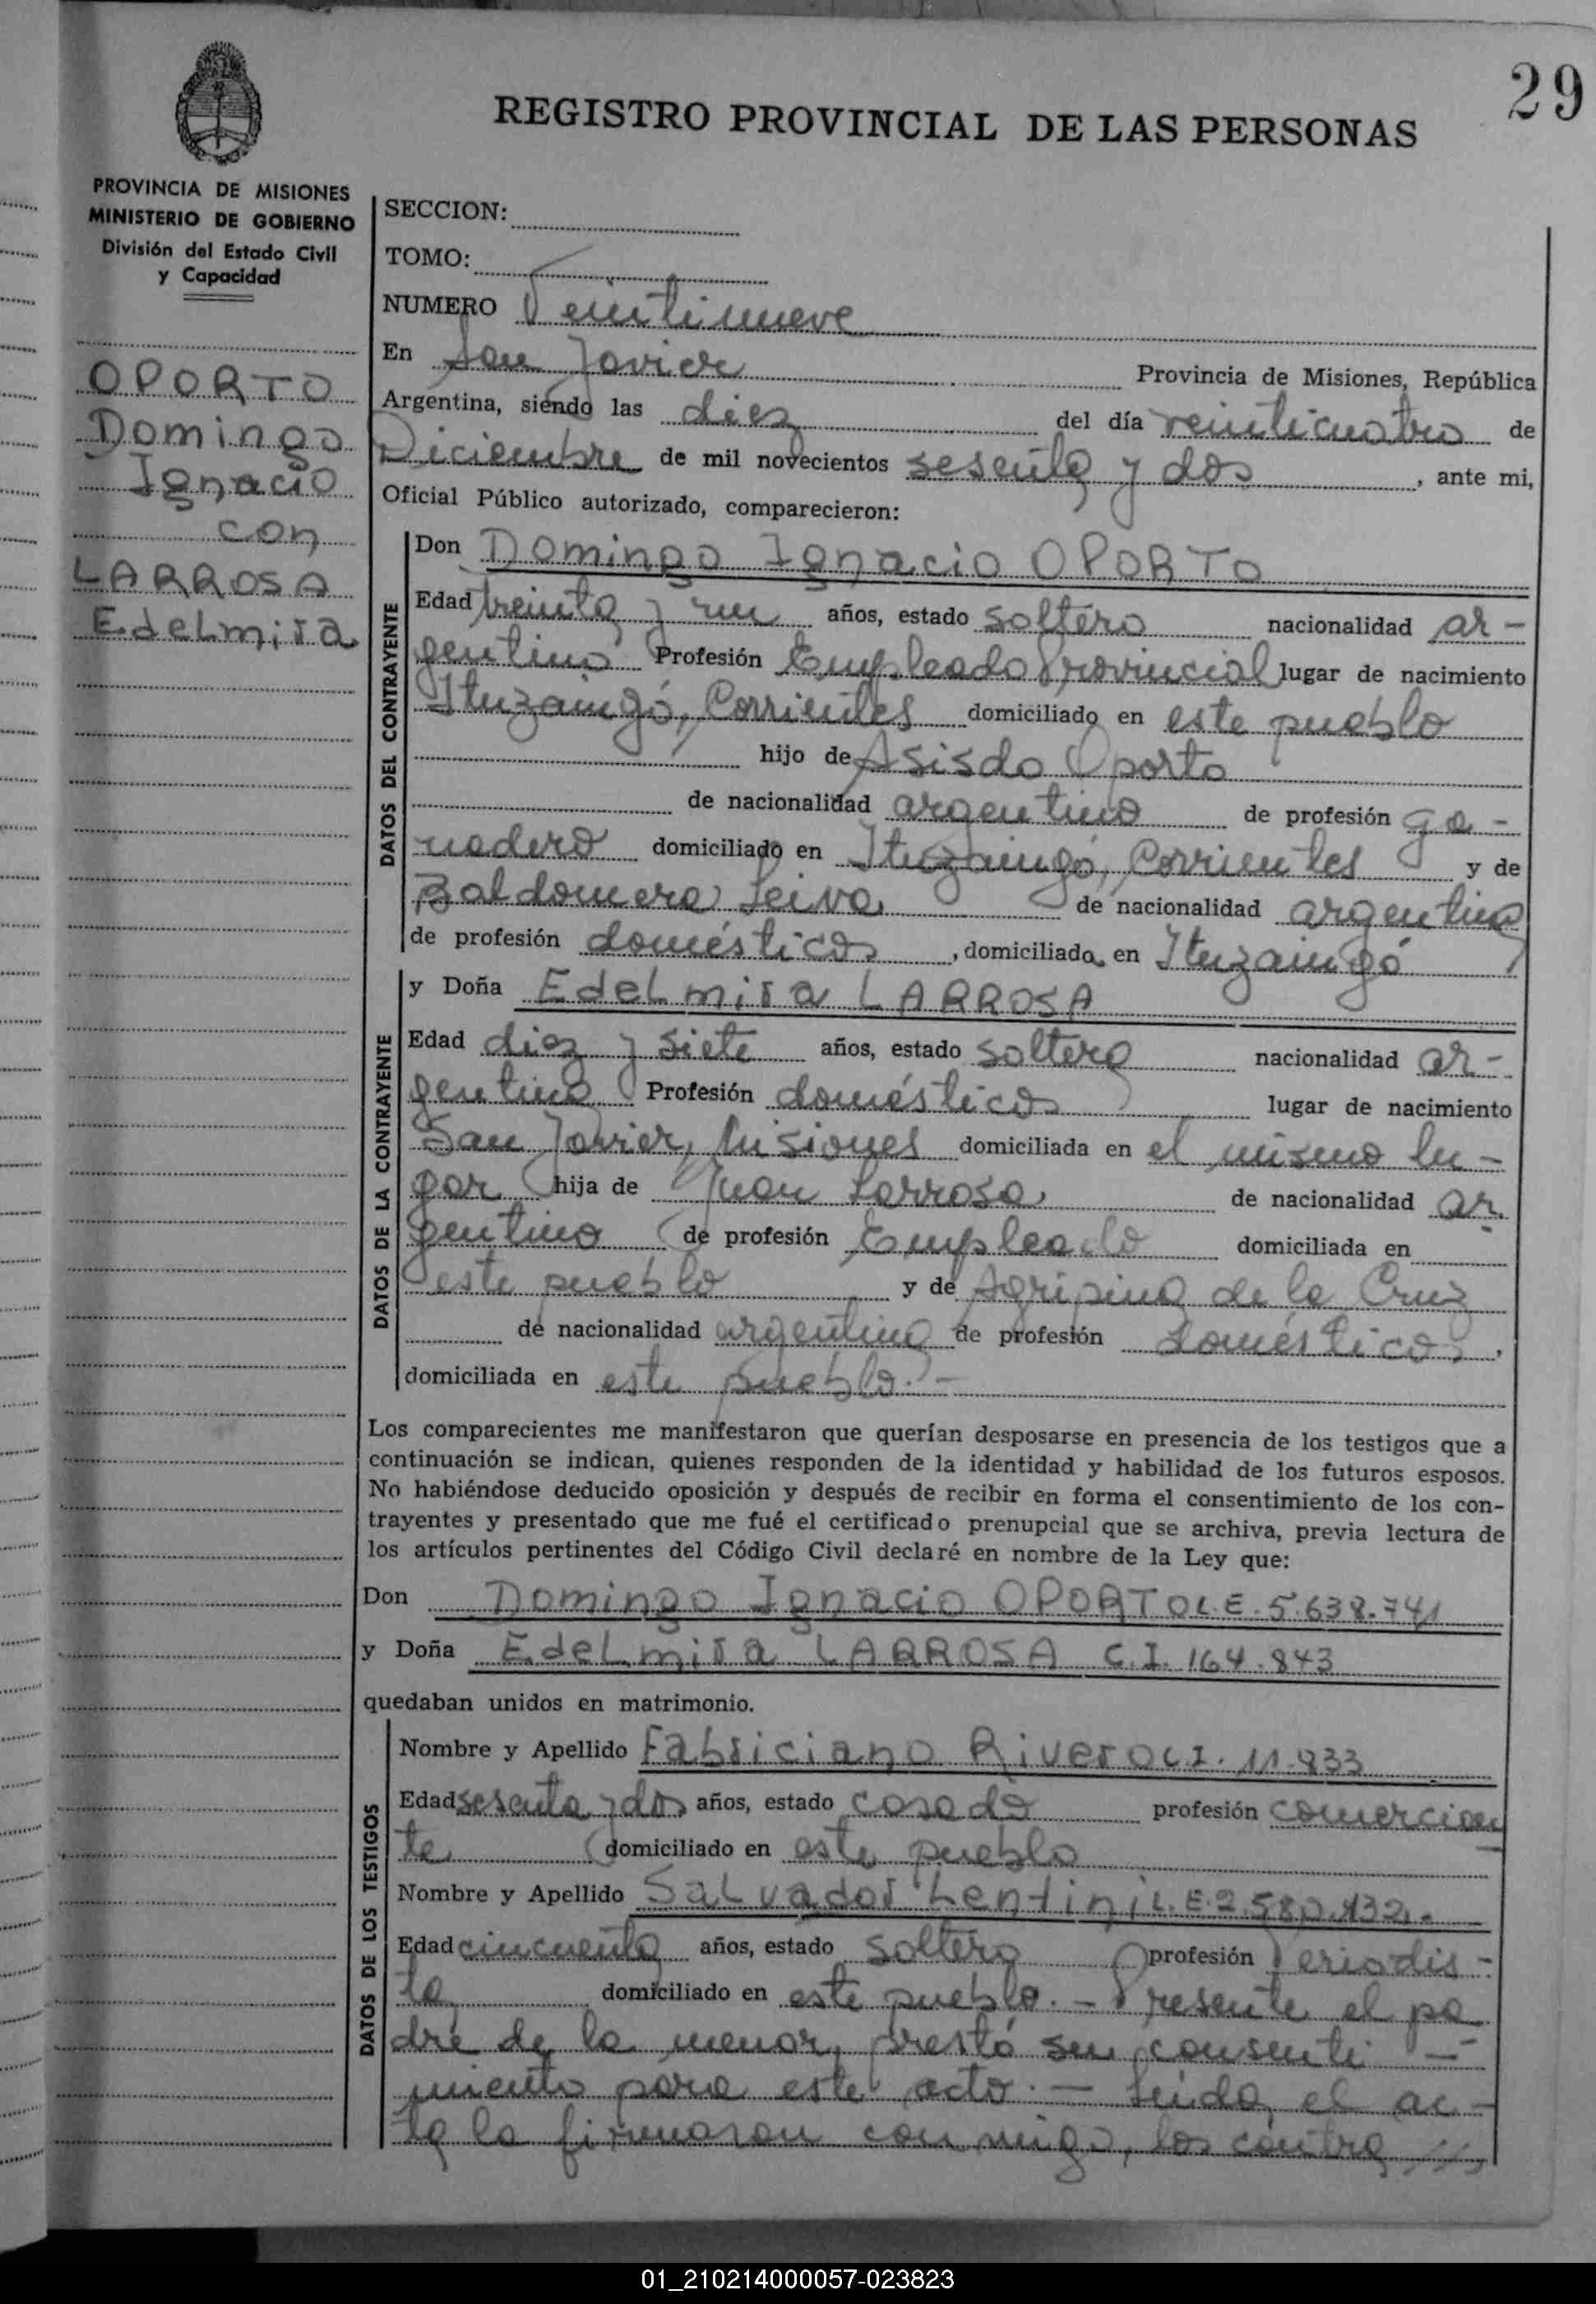 29
REGISTRO PROVINCIAL DE LAS PERSONAS
PROVINCIA DE MISIONES
MINISTERIO DE GOBIERNO
División del Estado Civil
y Capacidad
OPORTO
Domingo
Ignacio
con
LARROSA
Edelmira
SECCION:
TOMO:
NUMERO Veintinueve
En San Javier Provincia de Misiones, República
Argentina, siendo las diez del día veinticuatro de
Diciembre de mil novecientos sesenta y dos, ante mi,
Oficial Público autorizado, comparecieron:
DATOS DEL CONTRAYENTE
Don Domingo Ignacio OPORTO
Edad treinta y un años, estado soltero nacionalidad ar-
gentino Profesión Empleado Provincial lugar de nacimiento
Ituzaingó, Corrientes domiciliado en este pueblo
hijo de Asisdo Oporto
de nacionalidad argentino de profesión ga-
nadero domiciliado en Ituzaingó, Corrientes y de
Baldomera Leiva de nacionalidad argentina
de profesión doméstica, domiciliada en Ituzaingó
DATOS DE LA CONTRAYENTE
y Doña Edelmira LARROSA
Edad diez y siete años, estado soltera nacionalidad ar-
gentina Profesión doméstica lugar de nacimiento
San Javier, Misiones domiciliada en el mismo lu-
gar hija de Juan Larrosa de nacionalidad ar-
gentino de profesión Empleado domiciliada en
este pueblo y de Agripina de la Cruz
de nacionalidad argentina de profesión doméstica,
domiciliada en este pueblo.-
Los comparecientes me manifestaron que querían desposarse en presencia de los testigos que a
continuación se indican, quienes responden de la identidad y habilidad de los futuros esposos.
No habiéndose deducido oposición y después de recibir en forma el consentimiento de los con-
trayentes y presentado que me fué el certificado prenupcial que se archiva, previa lectura de
los artículos pertinentes del Código Civil declaré en nombre de la Ley que:
Don Domingo Ignacio OPORTO L.E. 5.638.741
y Doña Edelmira LARROSA C.I. 164.843
quedaban unidos en matrimonio.
DATOS DE LOS TESTIGOS
Nombre y Apellido Fabriciano Rivero C.I. 11.933
Edad sesenta y dos años, estado casado profesión comercian
te domiciliado en este pueblo
Nombre y Apellido Salvador Lentini L.E. 2.580.132.-
Edad cincuenta años, estado soltero profesión Periodis-
ta domiciliado en este pueblo.- Presente el pa
dre de la menor, prestó su consenti-
miento para este acto.- Leída el ac-
ta la firmaron conmigo, los contra ///
01_210214000057-023823